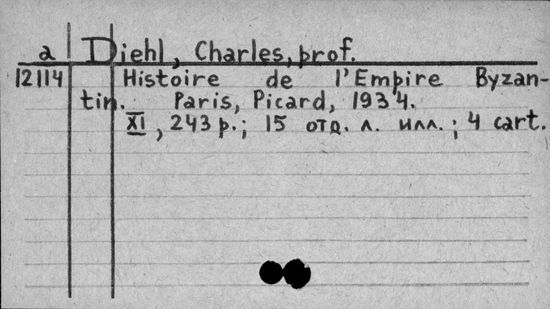 a Diehl, Charles, prof.
12114 Histoire de l'Empire Byzan-
tin. Paris, Picard, 1934.
XI, 243 p.; 15 отд. л. илл.; 4 cart.